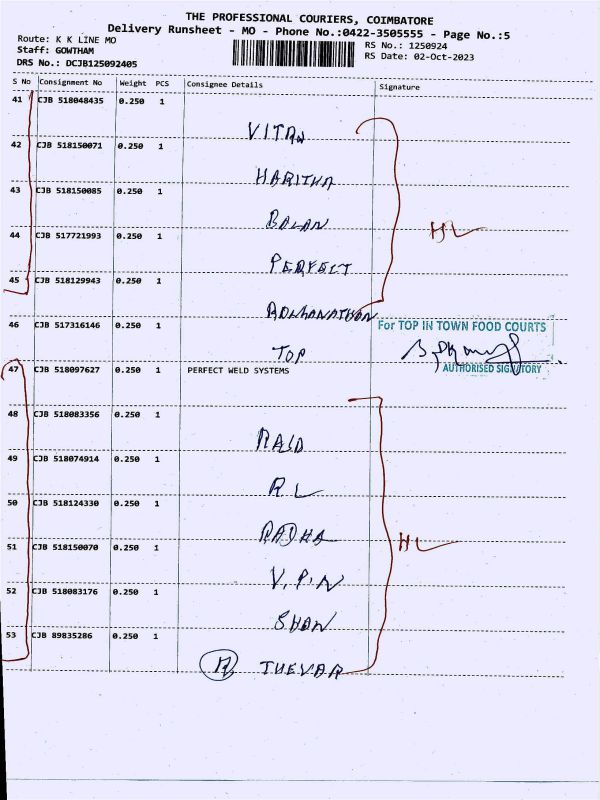 THE PROFESSIONAL COURIERS, COIMBATORE
Delivery Runsheet - MO - Phone No.:0422-3505555 - Page No.:5
Route: K K LINE MO
RS No.: 1250924
Staff: GOWTHAM
RS Date: 02-Oct-2023
DRS No.: DCJB125092405
S No Consignment No Weight PCS Consignee Details Signature
41 CJB 518048435 0.250 1
42 CJB 518150071 0.250 1
HARITHA
43 CJB 518150085 0.250 1
BALAN
44 CJB 517721993 0.250 1
HL
PERFECT
45 CJB 518129943 0.250 1
46 CJB 517316146 0.250 1
For TOP IN TOWN FOOD COURTS
TOP
AUTHORISED SIGNATORY
47 CJB 518097627 0.250 1 PERFECT WELD SYSTEMS
48 CJB 518083356 0.250 1
49 CJB 518074914 0.250 1
RL
50 CJB 518124330 0.250 1
RADHA
HL
51 CJB 518150070 0.250 1
V.P.N
52 CJB 518083176 0.250 1
SHAN
53 CJB 89835286 0.250 1
THEVAR